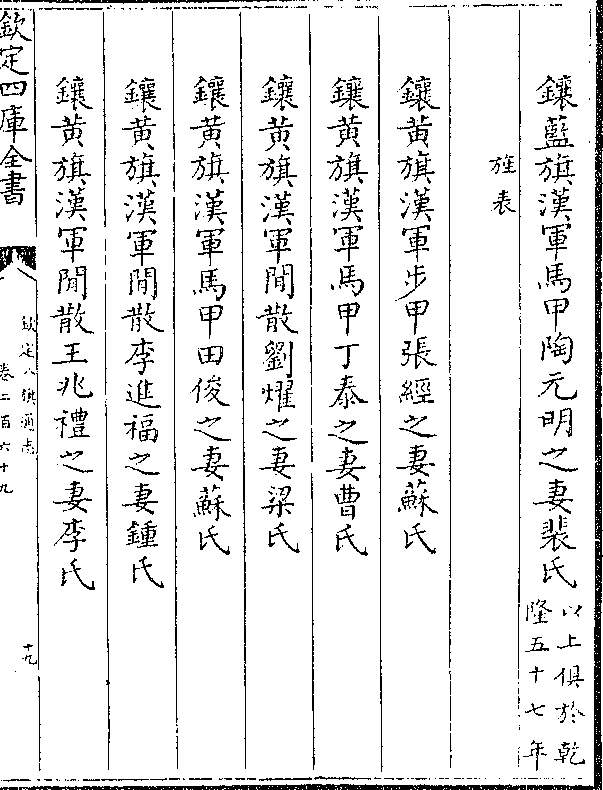 鑲藍旗漢軍馬甲陶元明之妻裴氏以上俱於乾
隆五十七年
旌表
鑲黃旗漢軍步甲張經之妻蘇氏
鑲黃旗漢軍馬甲丁泰之妻曹氏
鑲黃旗漢軍閒散劉燿之妻梁氏
鑲黃旗漢軍馬甲田俊之妻蘇氏
鑲黃旗漢軍閒散李進福之妻鍾氏
鑲黃旗漢軍閒散王兆禮之妻李氏
欽定四庫全書
欽定八旗通志
卷二百六十九
十九